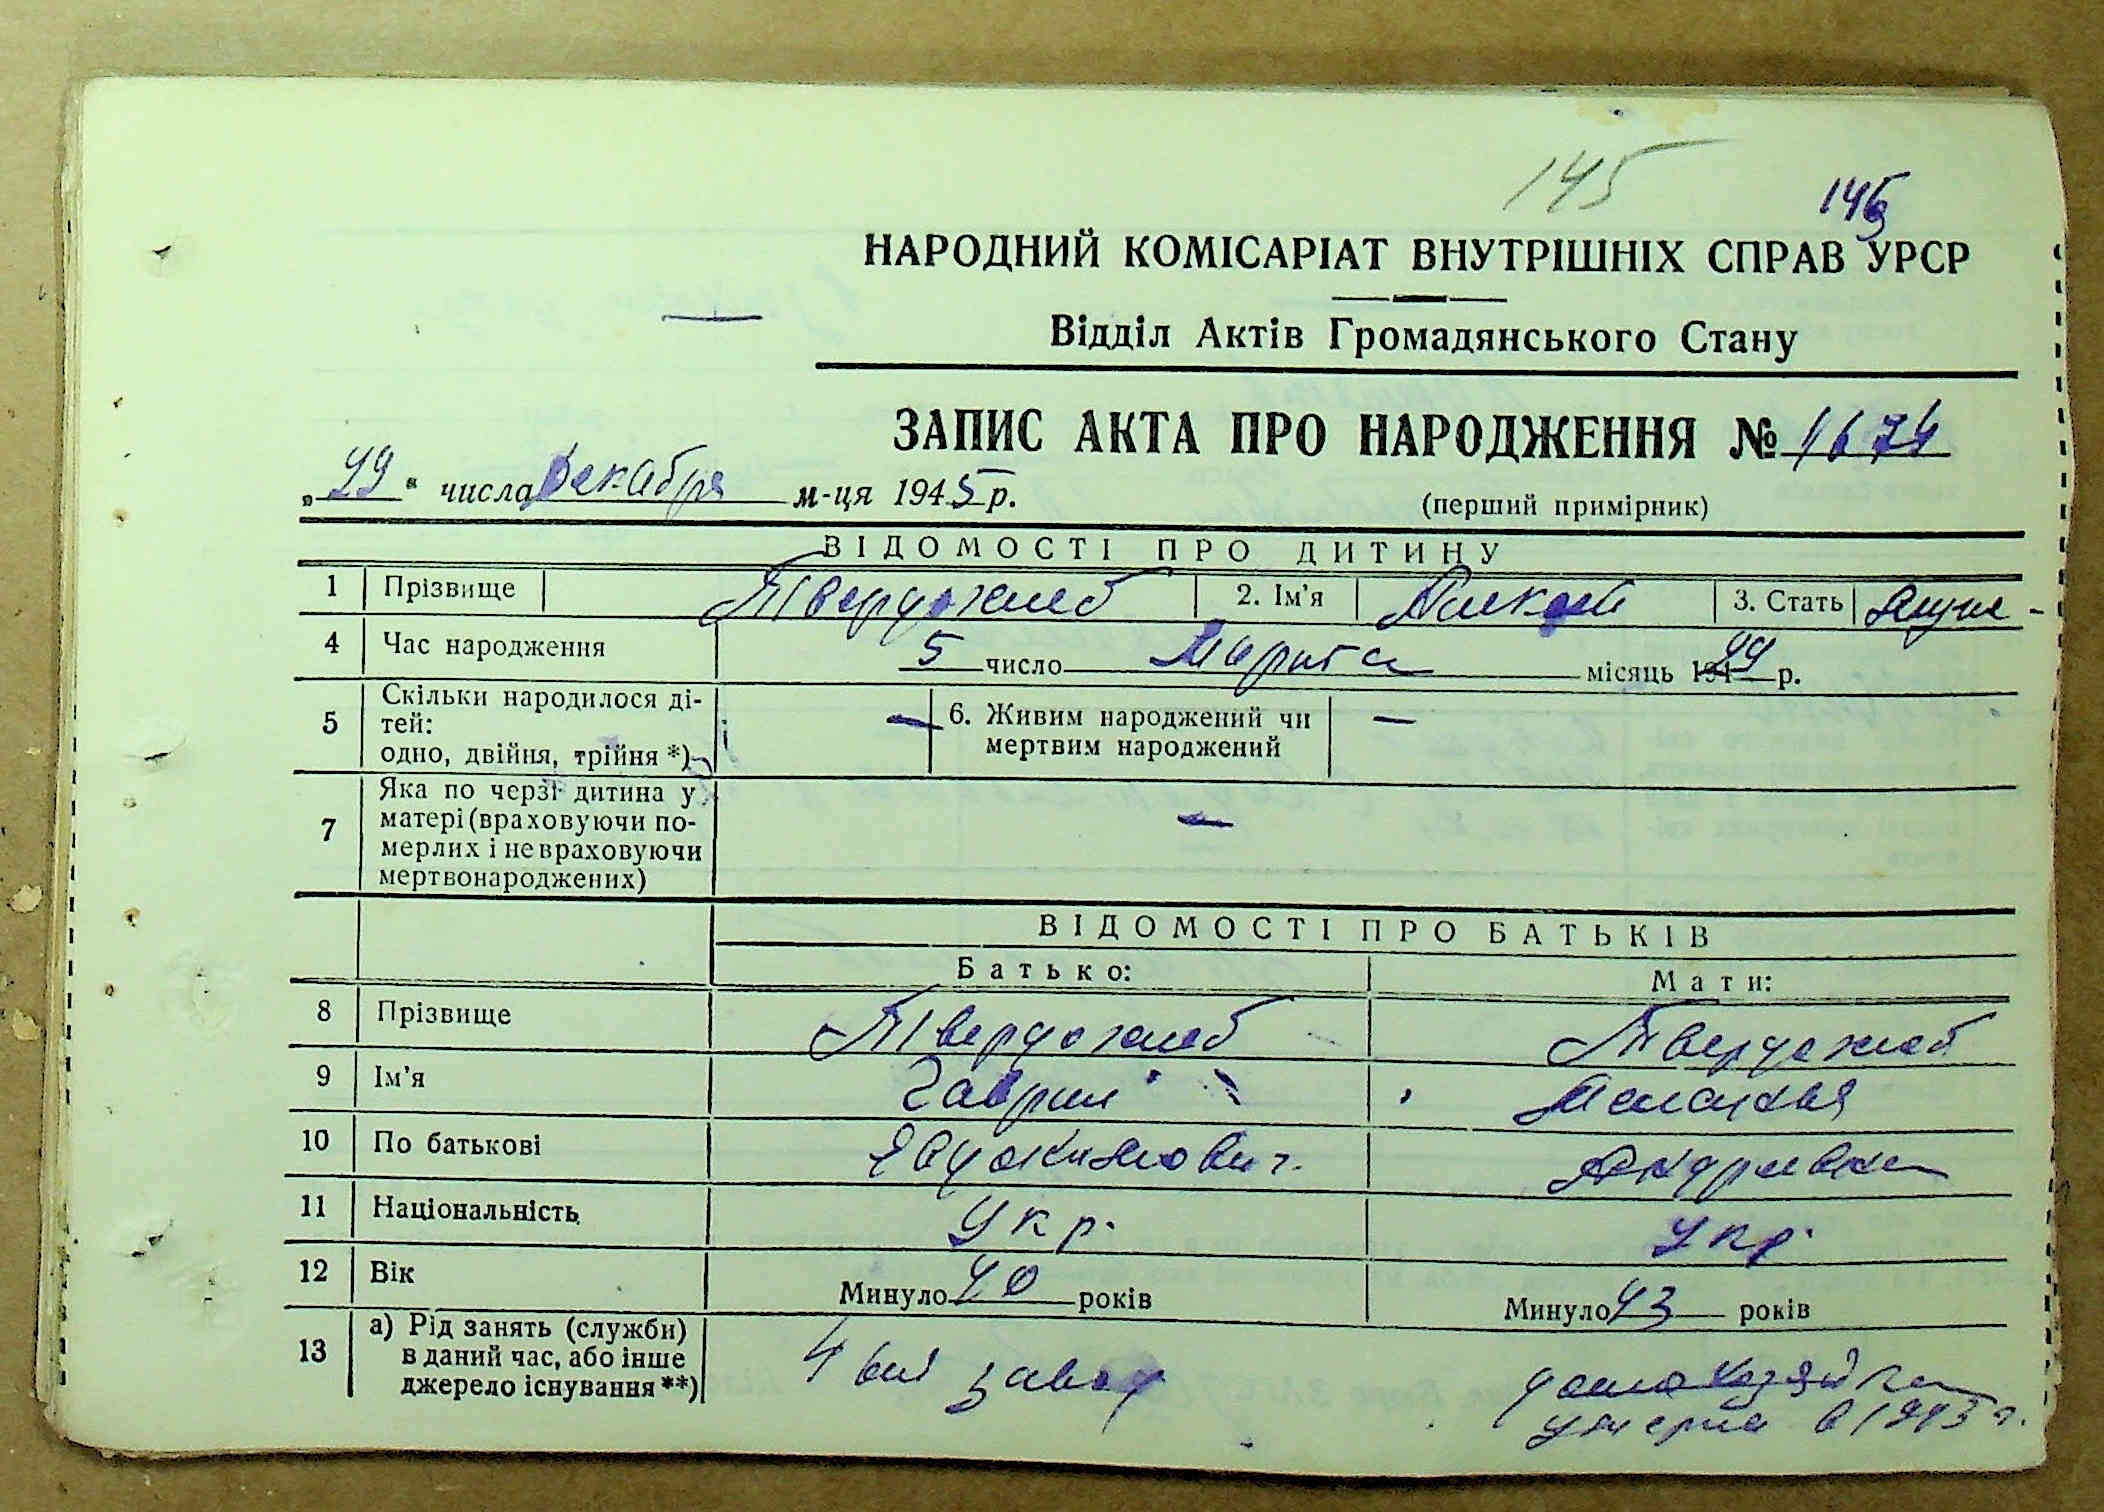 145
145
НАРОДНИЙ КОМІСАРІАТ ВНУТРІШНІХ СПРАВ УРСР
Відділ Актів Громадянського Стану
ЗАПИС АКТА ПРО НАРОДЖЕННЯ № 1674
„29“ числа декабря м-ця 1945 р.
(перший примірник)
ВІДОМОСТІ ПРО ДИТИНУ
1 Прізвище Твердохлеб 2. Ім'я Алексей 3. Стать муж-
4 Час народження 5 число Марта місяць 1929 р.
5 Скільки народилося ді-
тей:
одно, двійня, трійня *) — 6. Живим народжений чи
мертвим народжений —
7 Яка по черзі дитина у
матері (враховуючи по-
мерлих і не враховуючи
мертвонароджених) —
ВІДОМОСТІ ПРО БАТЬКІВ
Батько: Мати:
8 Прізвище Твердохлеб Твердохлеб
9 Ім'я Гаврил Меланья
10 По батькові Явдокимович Андреевна
11 Національність Укр. Укр.
12 Вік Минуло 40 років Минуло 43 років
13 а) Рід занять (служби)
в даний час, або інше
джерело існування **)
завод домохозяйка
умерла в 1943 г.